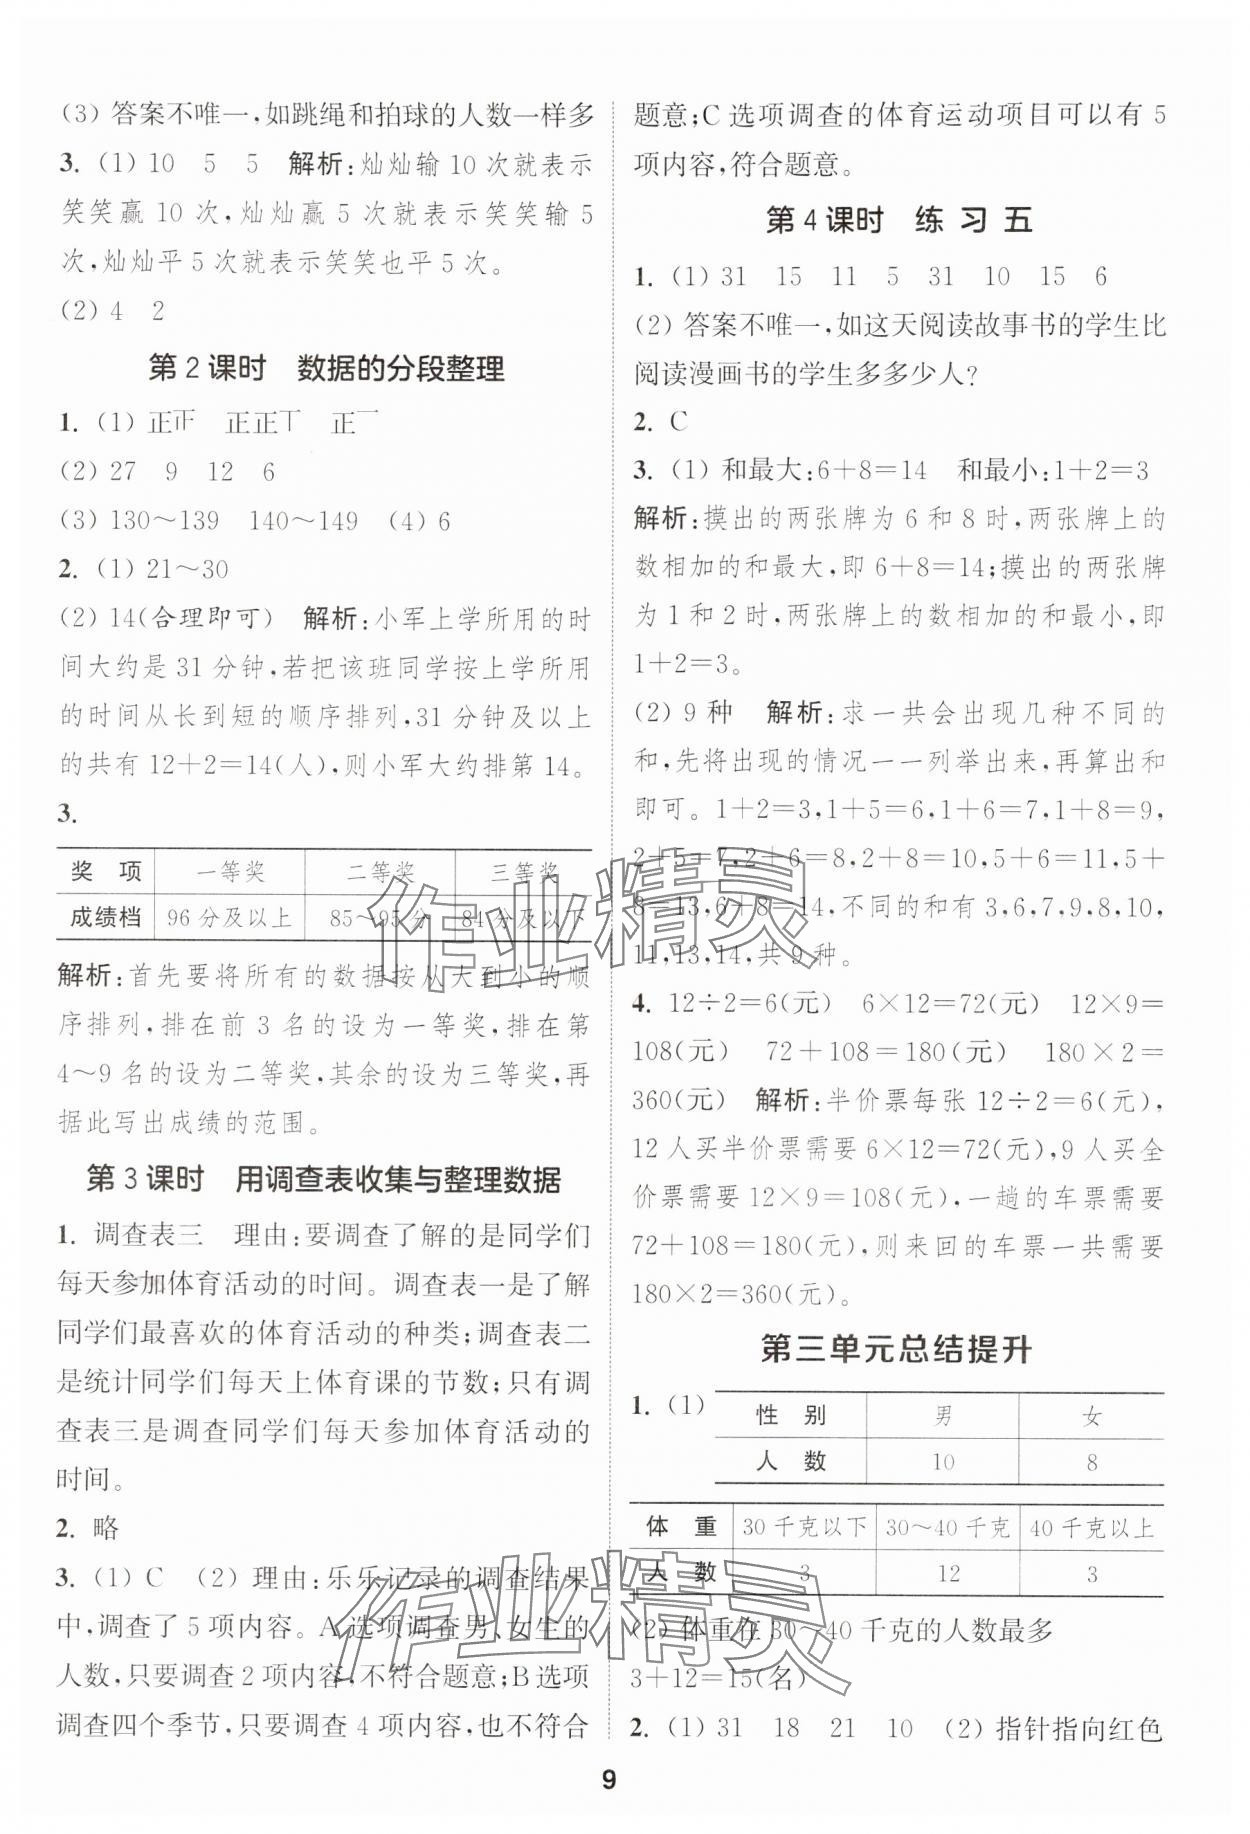 (3) 答案不唯一,如跳绳和拍球的人数一样多
3. (1) 10 5 5 解析:灿灿输 10 次就表示
笑笑赢 10 次,灿灿赢 5 次就表示笑笑输 5
次,灿灿平 5 次就表示笑笑也平 5 次。
(2) 4 2
第 2 课时 数据的分段整理
1. (1)
(2) 27 9 12 6
(3) 130～139 140～149 (4) 6
2. (1) 21～30
(2) 14(合理即可) 解析:小军上学所用的时
间大约是 31 分钟,若把该班同学按上学所用
的时间从长到短的顺序排列,31 分钟及以上
的共有 12+2=14(人),则小军大约排第 14。
3.
奖 项 一等奖 二等奖 三等奖
成绩档 96 分及以上 85～95 分 84 分及以下
解析:首先要将所有的数据按从大到小的顺
序排列,排在前 3 名的设为一等奖,排在第
4～9 名的设为二等奖,其余的设为三等奖,再
据此写出成绩的范围。
第 3 课时 用调查表收集与整理数据
1. 调查表三 理由:要调查了解的是同学们
每天参加体育活动的时间。调查表一是了解
同学们最喜欢的体育活动的种类;调查表二
是统计同学们每天上体育课的节数;只有调
查表三是调查同学们每天参加体育活动的
时间。
2. 略
3. (1) C (2) 理由:乐乐记录的调查结果
中,调查了 5 项内容。A 选项调查男、女生的
人数,只要调查 2 项内容,不符合题意;B 选项
调查四个季节,只要调查 4 项内容,也不符合
题意;C 选项调查的体育运动项目可以有 5
项内容,符合题意。
第 4 课时 练 习 五
1. (1) 31 15 11 5 31 10 15 6
(2) 答案不唯一,如这天阅读故事书的学生比
阅读漫画书的学生多多少人?
2. C
3. (1) 和最大:6+8=14 和最小:1+2=3
解析:摸出的两张牌为 6 和 8 时,两张牌上的
数相加的和最大,即 6+8=14;摸出的两张牌
为 1 和 2 时,两张牌上的数相加的和最小,即
1+2=3。
(2) 9 种 解析:求一共会出现几种不同的
和,先将出现的情况一一列举出来,再算出和
即可。1+2=3,1+5=6,1+6=7,1+8=9,
2+5=7,2+6=8,2+8=10,5+6=11,5+
8=13,6+8=14,不同的和有 3,6,7,9,8,10,
11,13,14,共 9 种。
4. 12÷2=6(元) 6×12=72(元) 12×9=
108(元) 72+108=180(元) 180×2=
360(元) 解析:半价票每张 12÷2=6(元),
12 人买半价票需要 6×12=72(元),9 人买全
价票需要 12×9=108(元),一趟的车票需要
72+108=180(元),则来回的车票一共需要
180×2=360(元)。
第三单元总结提升
1. (1)
性 别 男 女
人 数 10 8
体 重 30 千克以下 30～40 千克 40 千克以上
人 数 3 12 3
(2) 体重在 30～40 千克的人数最多
3+12=15(名)
2. (1) 31 18 21 10 (2) 指针指向红色
9
作业精灵
作业精灵